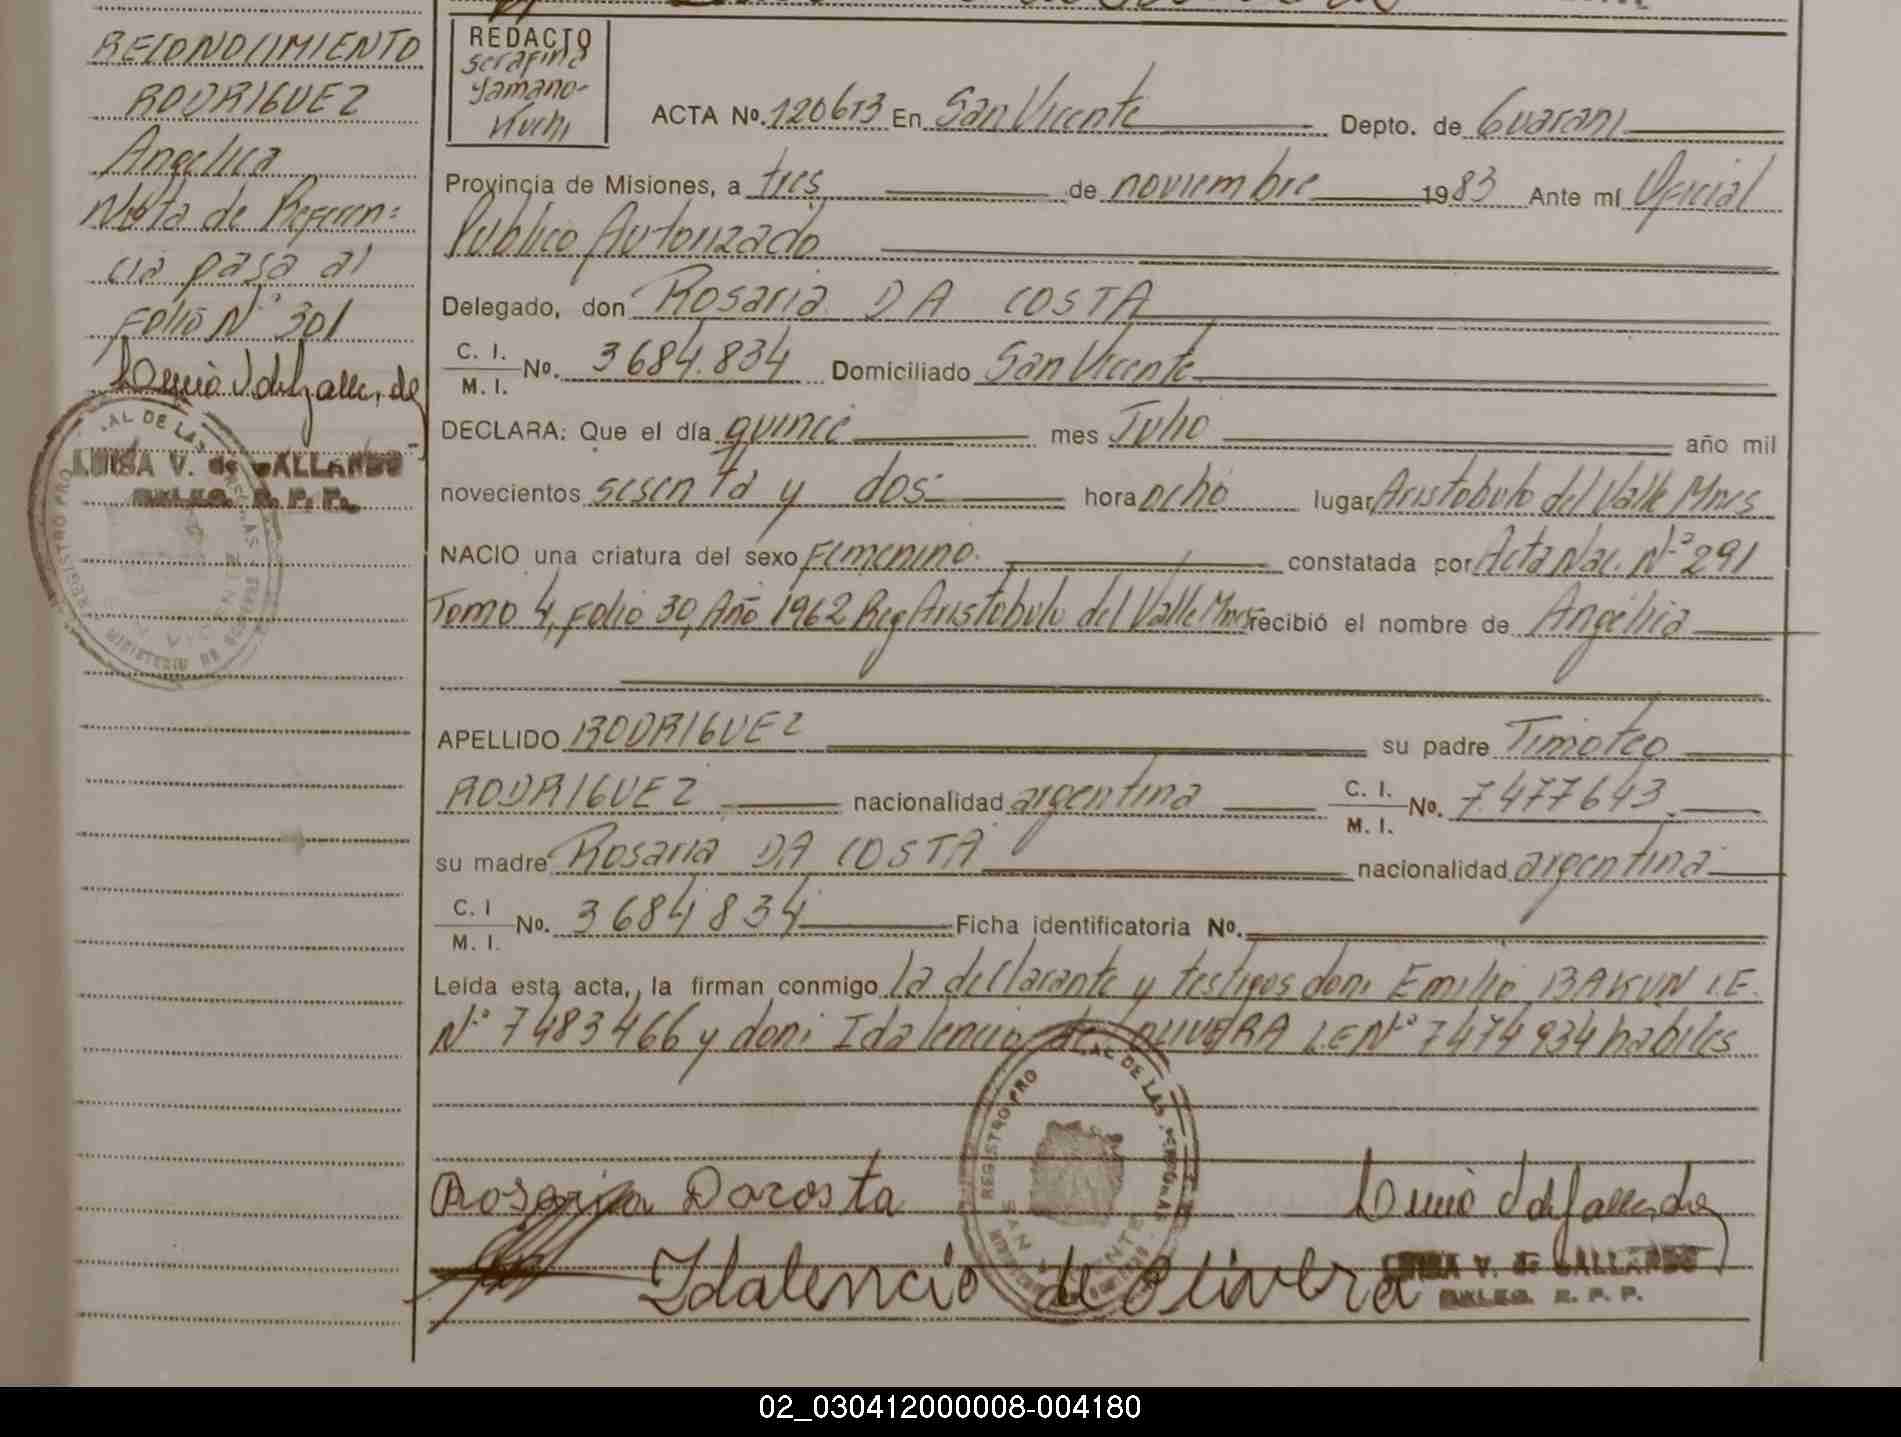 RECONOCIMIENTO
RODRIGUEZ
Angelica
Nota de Referen=
cia pasa al
Folio N° 301
LUISA V. de GALLARDO
DALEG. R. P. P.
REGISTRO PRO AL DE LAS PERSONAS
REDACTO
Serafina
Yamano-
Kuchi
ACTA No. 120613 En San Vicente Depto. de Guarani
Provincia de Misiones, a tres de noviembre 1983 Ante mí Oficial
Publico Autorizado
Delegado, don Rosaria DA COSTA
C. I. M. I. No. 3684.834 Domiciliado San Vicente
DECLARA: Que el día quince mes Julio año mil
novecientos sesenta y dos= hora ocho lugar Aristobulo del Valle Mnes
NACIO una criatura del sexo Femenino. constatada por Acta Nac. N° 291
Tomo 4, Folio 30, Año 1962 Reg Aristobulo del Valle Mnes recibió el nombre de Angélica
APELLIDO RODRIGUEZ su padre Timoteo
RODRIGUEZ nacionalidad argentina C. I. M. I. No. 7.477643
su madre Rosaria DA COSTA nacionalidad argentina
C. I M. I. No. 3684834 Ficha identificatoria No.
Leída esta acta, la firman conmigo la declarante y testigos don: Emilio BAKUN L.E.
N° 7483466 y don: Idalencio de OLIVERA L.E N° 7474934 habiles
REGISTRO PRO AL DE LAS PERSONAS
SAN VICENTE
Rosaria Dacosta
Idalencio de Olivera
LUISA V. de GALLARDO
DALEG. R. P. P.
02_030412000008-004180